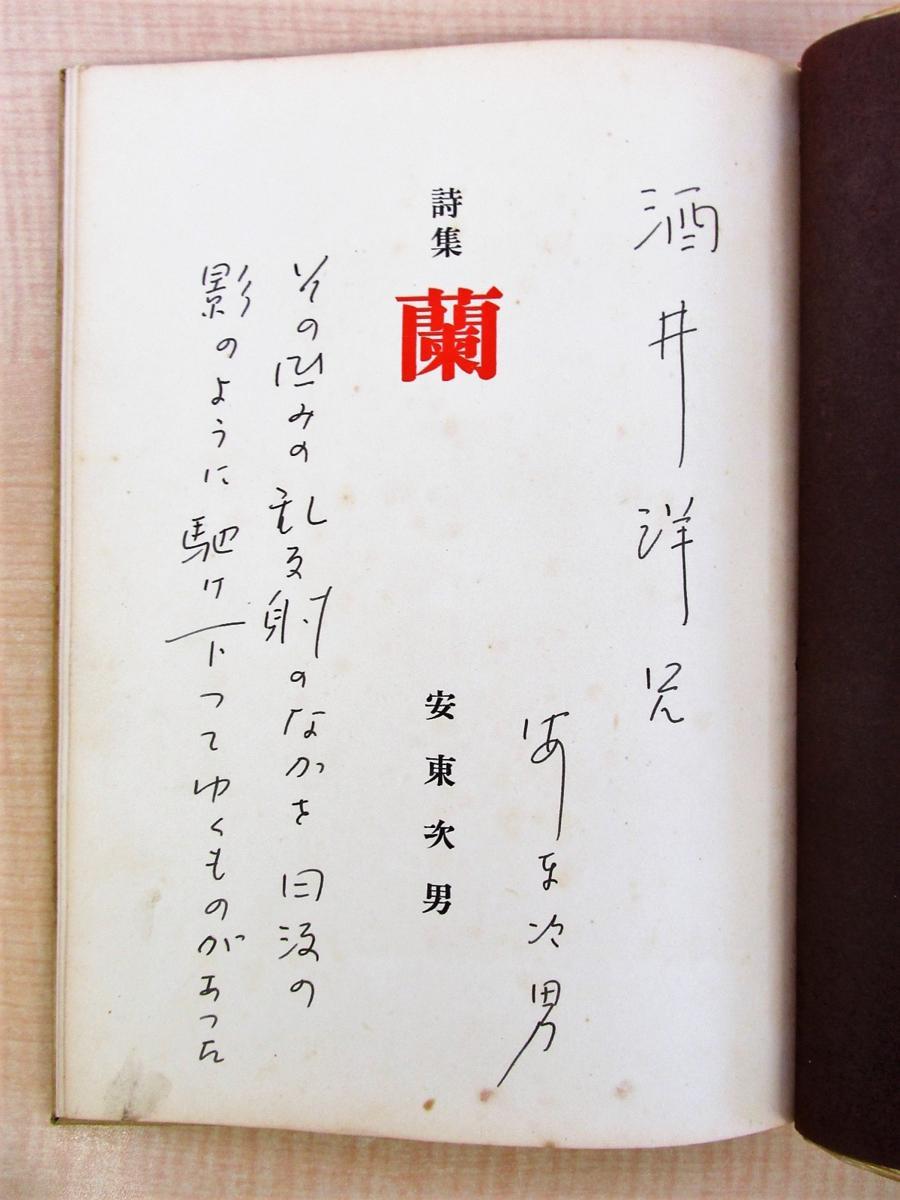 酒井洋兄
安東次男
詩集 蘭
安東次男
その凹みの乱反射のなかを 日没の
影のように馳け下つてゆくものがあつた